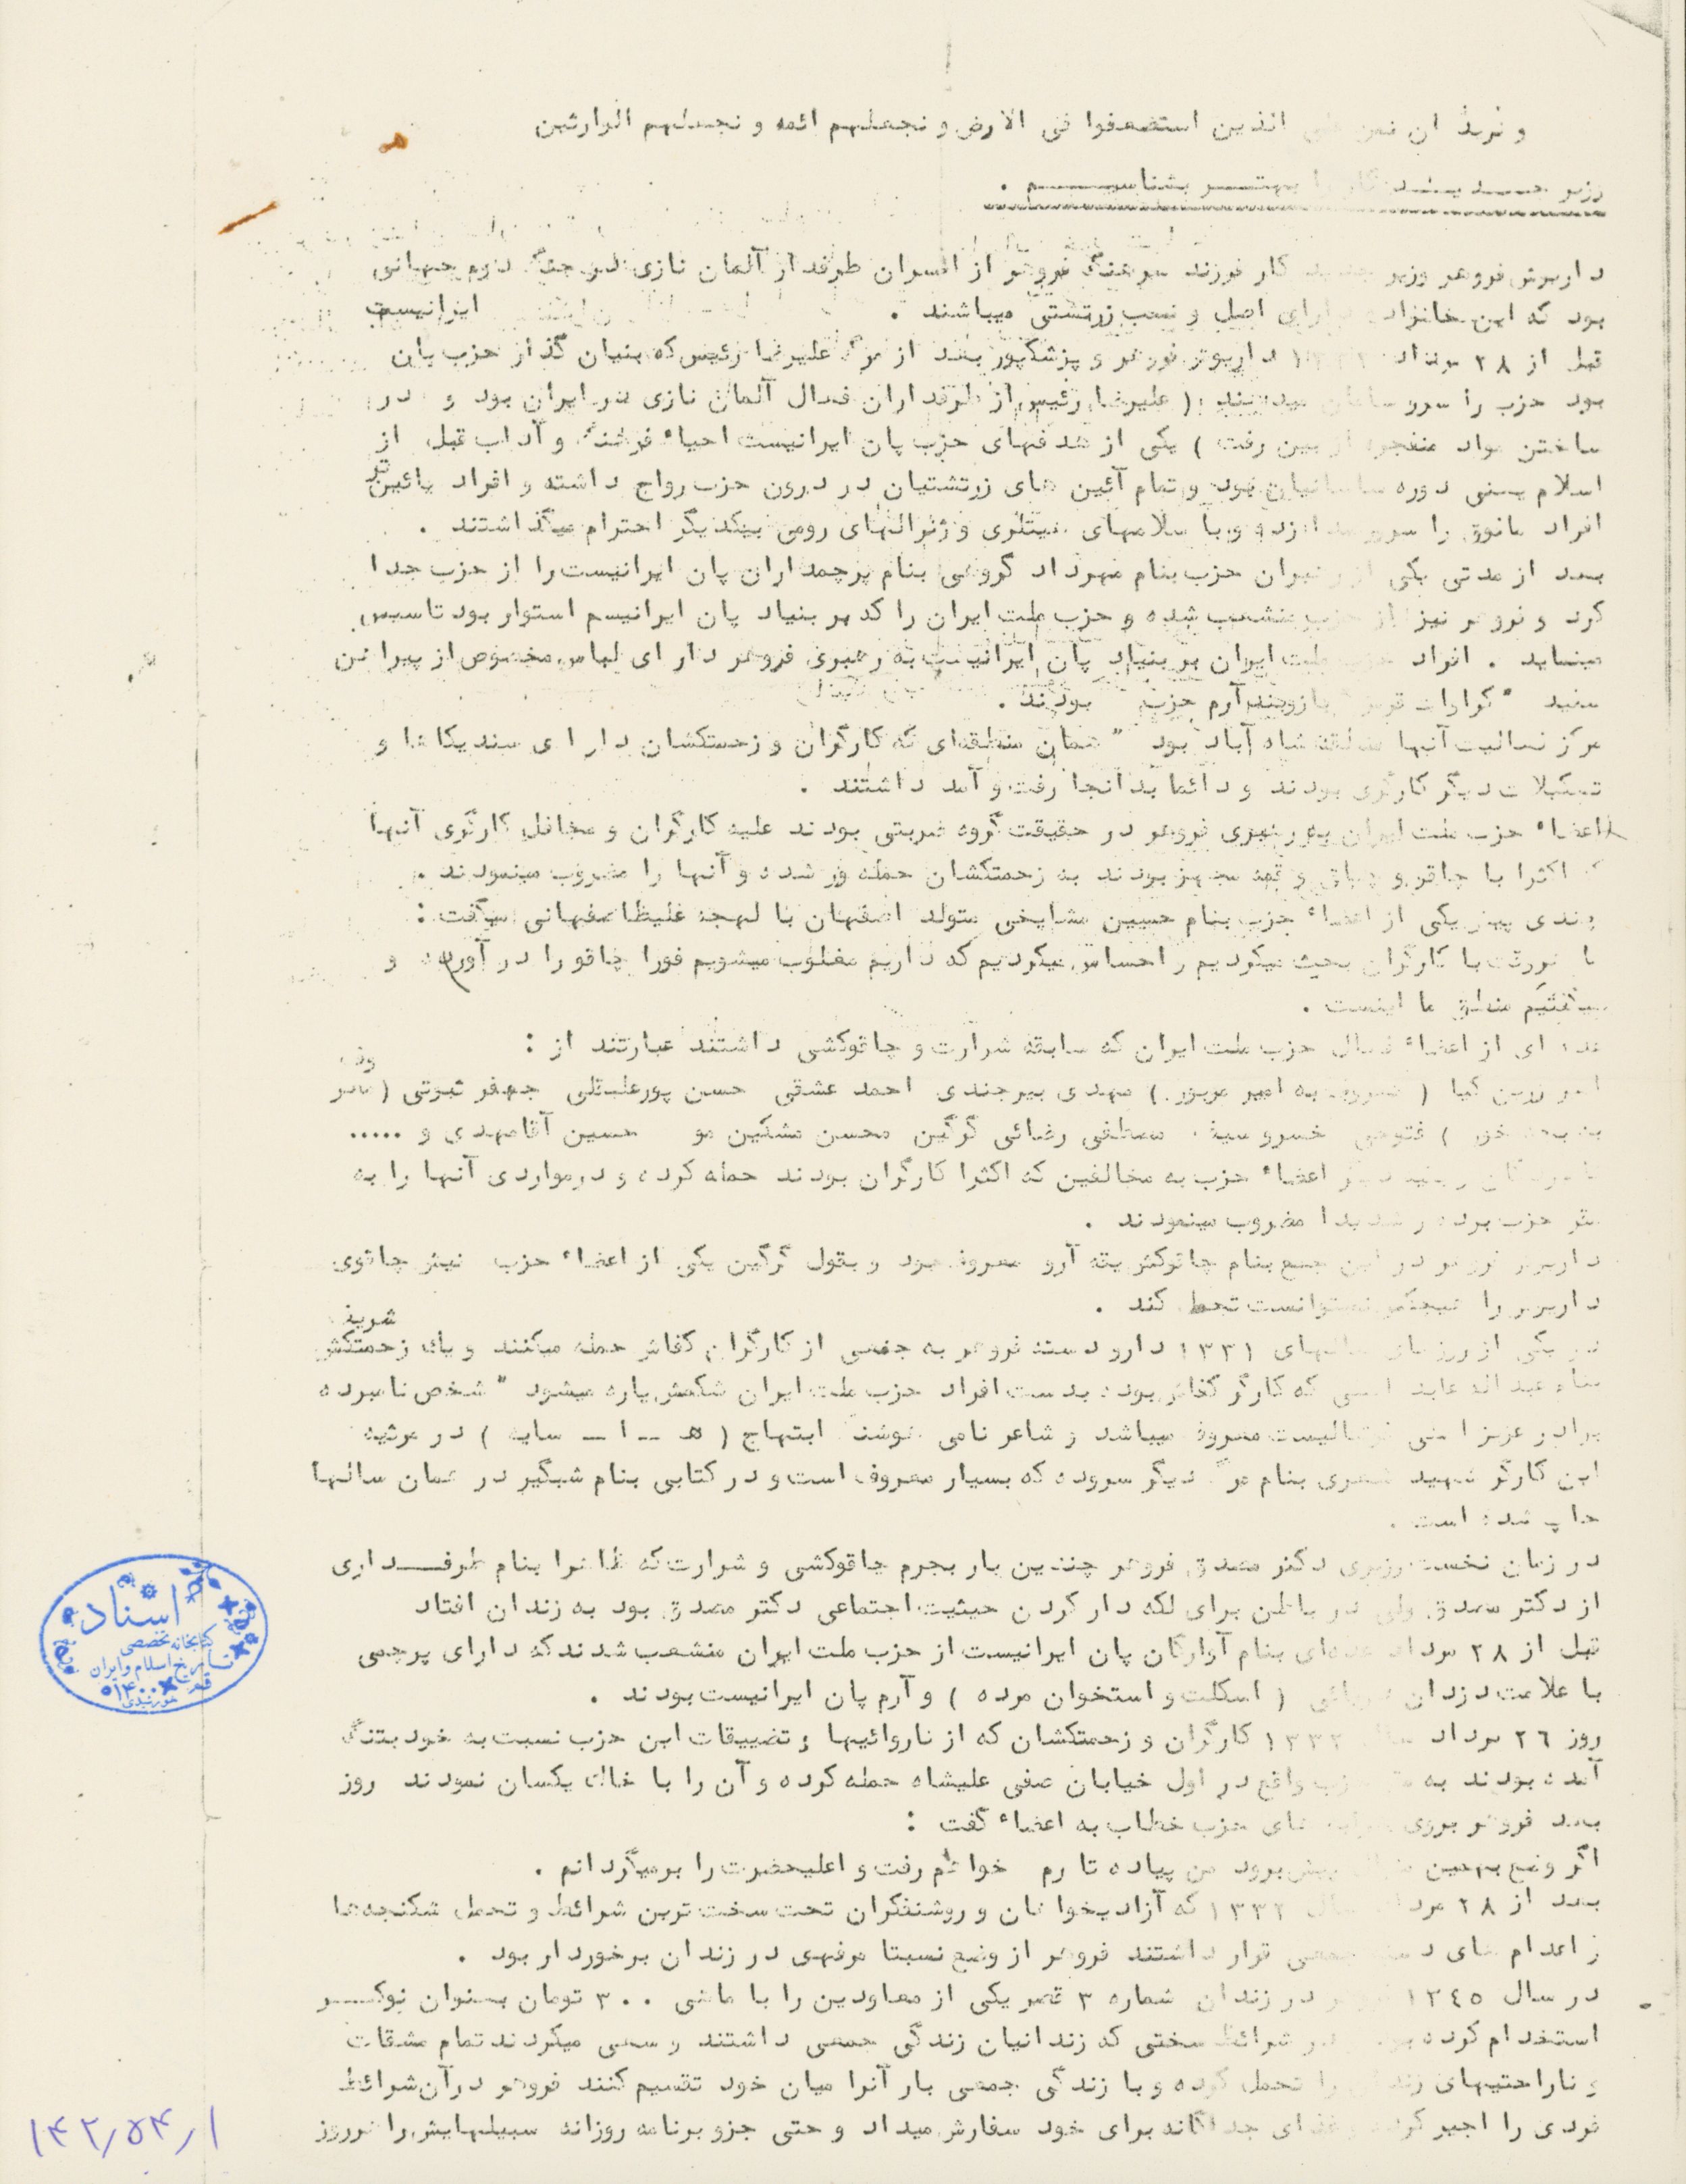 و نرید ان نمن الذین استضعفوا فی الارض و نجعلهم ائمه و نجعلهم الوارثین
وزیر جدید کار را بهتر بشناسیم .
داریوش فروهر وزیر جدید کار فرزند سرهنگ فروهر از افسران طرفدار آلمان نازی در جنگ دوم جهانی
بود که این خانواده دارای اصل و نسب زرتشتی میباشند . ایرانیست
قبل از ۲۸ مرداد داریوش فروهر و پزشکپور بعد از مرگ علیرضا رئیس که بنیان گذار حزب پان
بود حزب را سرو سامان میدهند ( علیرضا رئیس از طرفداران فعال آلمان نازی در ایران بود و در
ساختن مواد منفجره از بین رفت ) یکی از هدفهای حزب پان ایرانیست احیاء فرهنگ و آداب قبل از
اسلام یعنی دوره ساسانیان بود و تمام آئین های زرتشتیان در درون حزب رواج داشته و افراد پائین تر
افراد مافوق را سرور و با سلامهای هیتلری و ژنرالهای رومی بیکدیگر احترام میگذاشتند .
بعد از مدتی یکی از رهبران حزب بنام مهرداد گروهی بنام پرچمداران پان ایرانیست را از حزب جدا
کرد و فروهر نیز از حزب منشعب شده و حزب ملت ایران را که بر بنیاد پان ایرانیسم استوار بود تاسیس
مینماید . افراد حزب ملت ایران بر بنیاد پان ایرانیست به رهبری فروهر دارای لباس مخصوص از پیراهن
سفید کراوات بازوبند آرم حزب بودند .
مرکز فعالیت آنها منطقه شاه آباد بود " همان منطقه‌ای که کارگران و زحمتکشان دارای سندیکاها و
تشکیلات دیگر کارگری بودند و دائما بدآنجا رفت و آمد داشتند .
اعضاء حزب ملت ایران به رهبری فروهر در حقیقت گروه ضربتی بودند علیه کارگران و محافل کارگری آنها
که اکثرا با چاقو و چماق و قمه مجهز بودند به زحمتکشان حمله ور شده و آنها را مضروب مینمودند .
چندی پیش یکی از اعضاء حزب بنام حسین مشایخی متولد اصفهان با لهجه غلیظ اصفهانی میگفت :
ما هروقت با کارگران بحث میکردیم و احساس میکردیم که داریم مغلوب میشویم فورا چاقو را در آورده و
میگفتیم منطق ما اینست .
عده ای از اعضاء فعال حزب ملت ایران که سابقه شرارت و چاقوکشی داشتند عبارتند از :
امیر زرین کیا ( معروف به امیر موبور ) مهدی بیرجندی احمد عشقی حسن پورعلیقلی جعفر ثبوتی ( معروف
به خور ) فتوحی خسرو سیف مصطفی رضائی گرگین محسن مشکین مو حسین آقامهدی و .....
دیگر اعضاء حزب به مخالفین که اکثرا کارگران بودند حمله کرده و در مواردی آنها را به
مقر حزب برده و شدیدا مضروب مینمودند .
داریوش فروهر در این جمع بنام چاقوکش یته آرو معروف بود و بقول گرگین یکی از اعضاء حزب نیش چاقوی
داریوش را هیچکس نمیتوانست تحمل کند .
در یکی از روزهای سالهای ۱۳۳۱ دارو دسته فروهر به جمعی از کارگران کفاش حمله میکنند و یک زحمتکش شریف
بنام عبداله عابد امنی که کارگر کفاش بوده بدست افراد حزب ملت ایران شکمش پاره میشود " شخص نامبرده
برادر عزیز امنی معروف میباشد و شاعر نامی هوشنگ ابتهاج ( هـ ــ ا ــ سایه ) در مرثیه
این کارگر شهید شعری بنام مرگ دیگر سروده که بسیار معروف است و در کتابی بنام شبگیر در همان سالها
چاپ شده است .
در زمان نخست وزیری دکتر مصدق فروهر چندین بار بجرم چاقوکشی و شرارت که ظاهرا بنام طرفداری
از دکتر مصدق ولی در باطن برای لکه دار کردن حیثیت اجتماعی دکتر مصدق بود به زندان افتاد
قبل از ۲۸ مرداد عده‌ای بنام آوارگان پان ایرانیست از حزب ملت ایران منشعب شدند که دارای پرچمی
با علامت دزدان دریائی ( اسکلت و استخوان مرده ) و آرم پان ایرانیست بودند .
روز ۲٦ مرداد سال ۱۳۳۲ کارگران و زحمتکشان که از ناروائیها و تضییقات این حزب نسبت به خود بتنگ
آمده بودند به مقر حزب واقع در اول خیابان صفی علیشاه حمله کرده و آن را با خاک یکسان نمودند روز
بعد فروهر بروی خرابه های حزب خطاب به اعضاء گفت :
اگر وضع بهمین منوال پیش برود من پیاده تا رم خواهم رفت و اعلیحضرت را برمیگردانم .
بعد از ۲۸ مرداد سال ۱۳۳۲ که آزادیخواهان و روشنفکران تحت سخت ترین شرائط و تحمل شکنجه‌ها
و اعدام های دسته جمعی قرار داشتند فروهر از وضع نسبتا مرفهی در زندان برخوردار بود .
در سال ۱۳٤٥ فروهر در زندان شماره ۳ قصر یکی از معاودین را با ماهی ۳۰۰ تومان بعنوان نوکر
استخدام کرده بود در شرائط سختی که زندانیان زندگی جمعی داشتند و سعی میکردند تمام مشقات
و ناراحتیهای زندان را تحمل کرده و با زندگی جمعی بار آنرا میان خود تقسیم کنند فروهر در آن شرائط
فردی را اجیر کرده و غذای جداگانه برای خود سفارش میداد و حتی جزو برنامه روزانه سبیلهایش را هرروز
اسناد
کتابخانه تخصصی
تاریخ اسلام و ایران
قم
۱۴۲/۵۴/۱